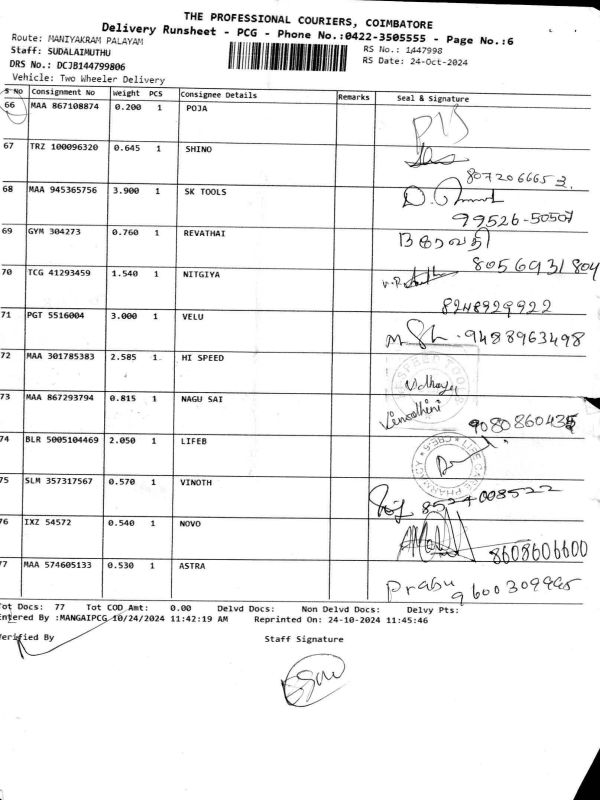 THE PROFESSIONAL COURIERS, COIMBATORE
Delivery Runsheet - PCG - Phone No.:0422-3505555 - Page No.:6
Route: MANIYAKRAM PALAYAM RS No.: 1447998
Staff: SUDALAIMUTHU RS Date: 24-Oct-2024
DRS No.: DCJB144799806
Vehicle: Two Wheeler Delivery
S No Consignment No Weight PCS Consignee Details Remarks Seal & Signature
66 MAA 867108874 0.200 1 POJA
67 TRZ 100096320 0.645 1 SHINO
8072066653.
68 MAA 945365756 3.900 1 SK TOOLS
99526-50507
69 GYM 304273 0.760 1 REVATHAI ரேவதி
8056931804
70 TCG 41293459 1.540 1 NITGIYA
8248929922
71 PGT 5516004 3.000 1 VELU
9488963498
72 MAA 301785383 2.585 1 HI SPEED
73 MAA 867293794 0.815 1 NAGU SAI
74 BLR 5005104469 2.050 1 LIFEB
75 SLM 357317567 0.570 1 VINOTH
8524008522
76 IXZ 54572 0.540 1 NOVO
8608606600
77 MAA 574605133 0.530 1 ASTRA
Prabu
Tot Docs: 77 Tot COD Amt: 0.00 Delvd Docs: Non Delvd Docs: Delvy Pts:
Entered By :MANGAIPCG 10/24/2024 11:42:19 AM Reprinted On: 24-10-2024 11:45:46
Verified By Staff Signature